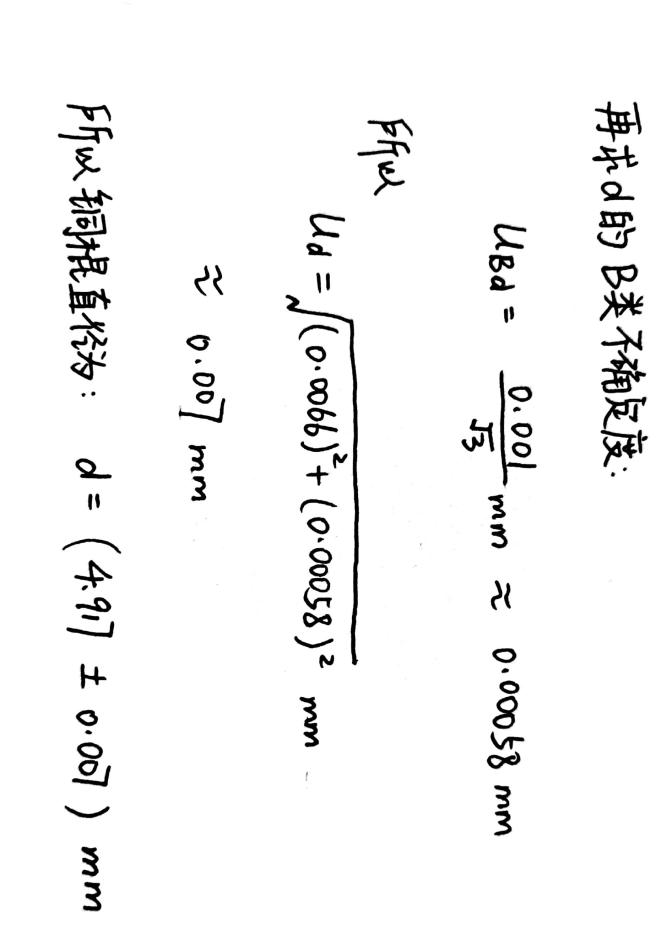 再求d的B类不确定度:
U_Bd = 0.001/√3 mm ≈ 0.00058 mm
所以
U_d = √((0.0066)² + (0.00058)²) mm
≈ 0.007 mm
所以铜棍直径为: d = (4.917 ± 0.007) mm